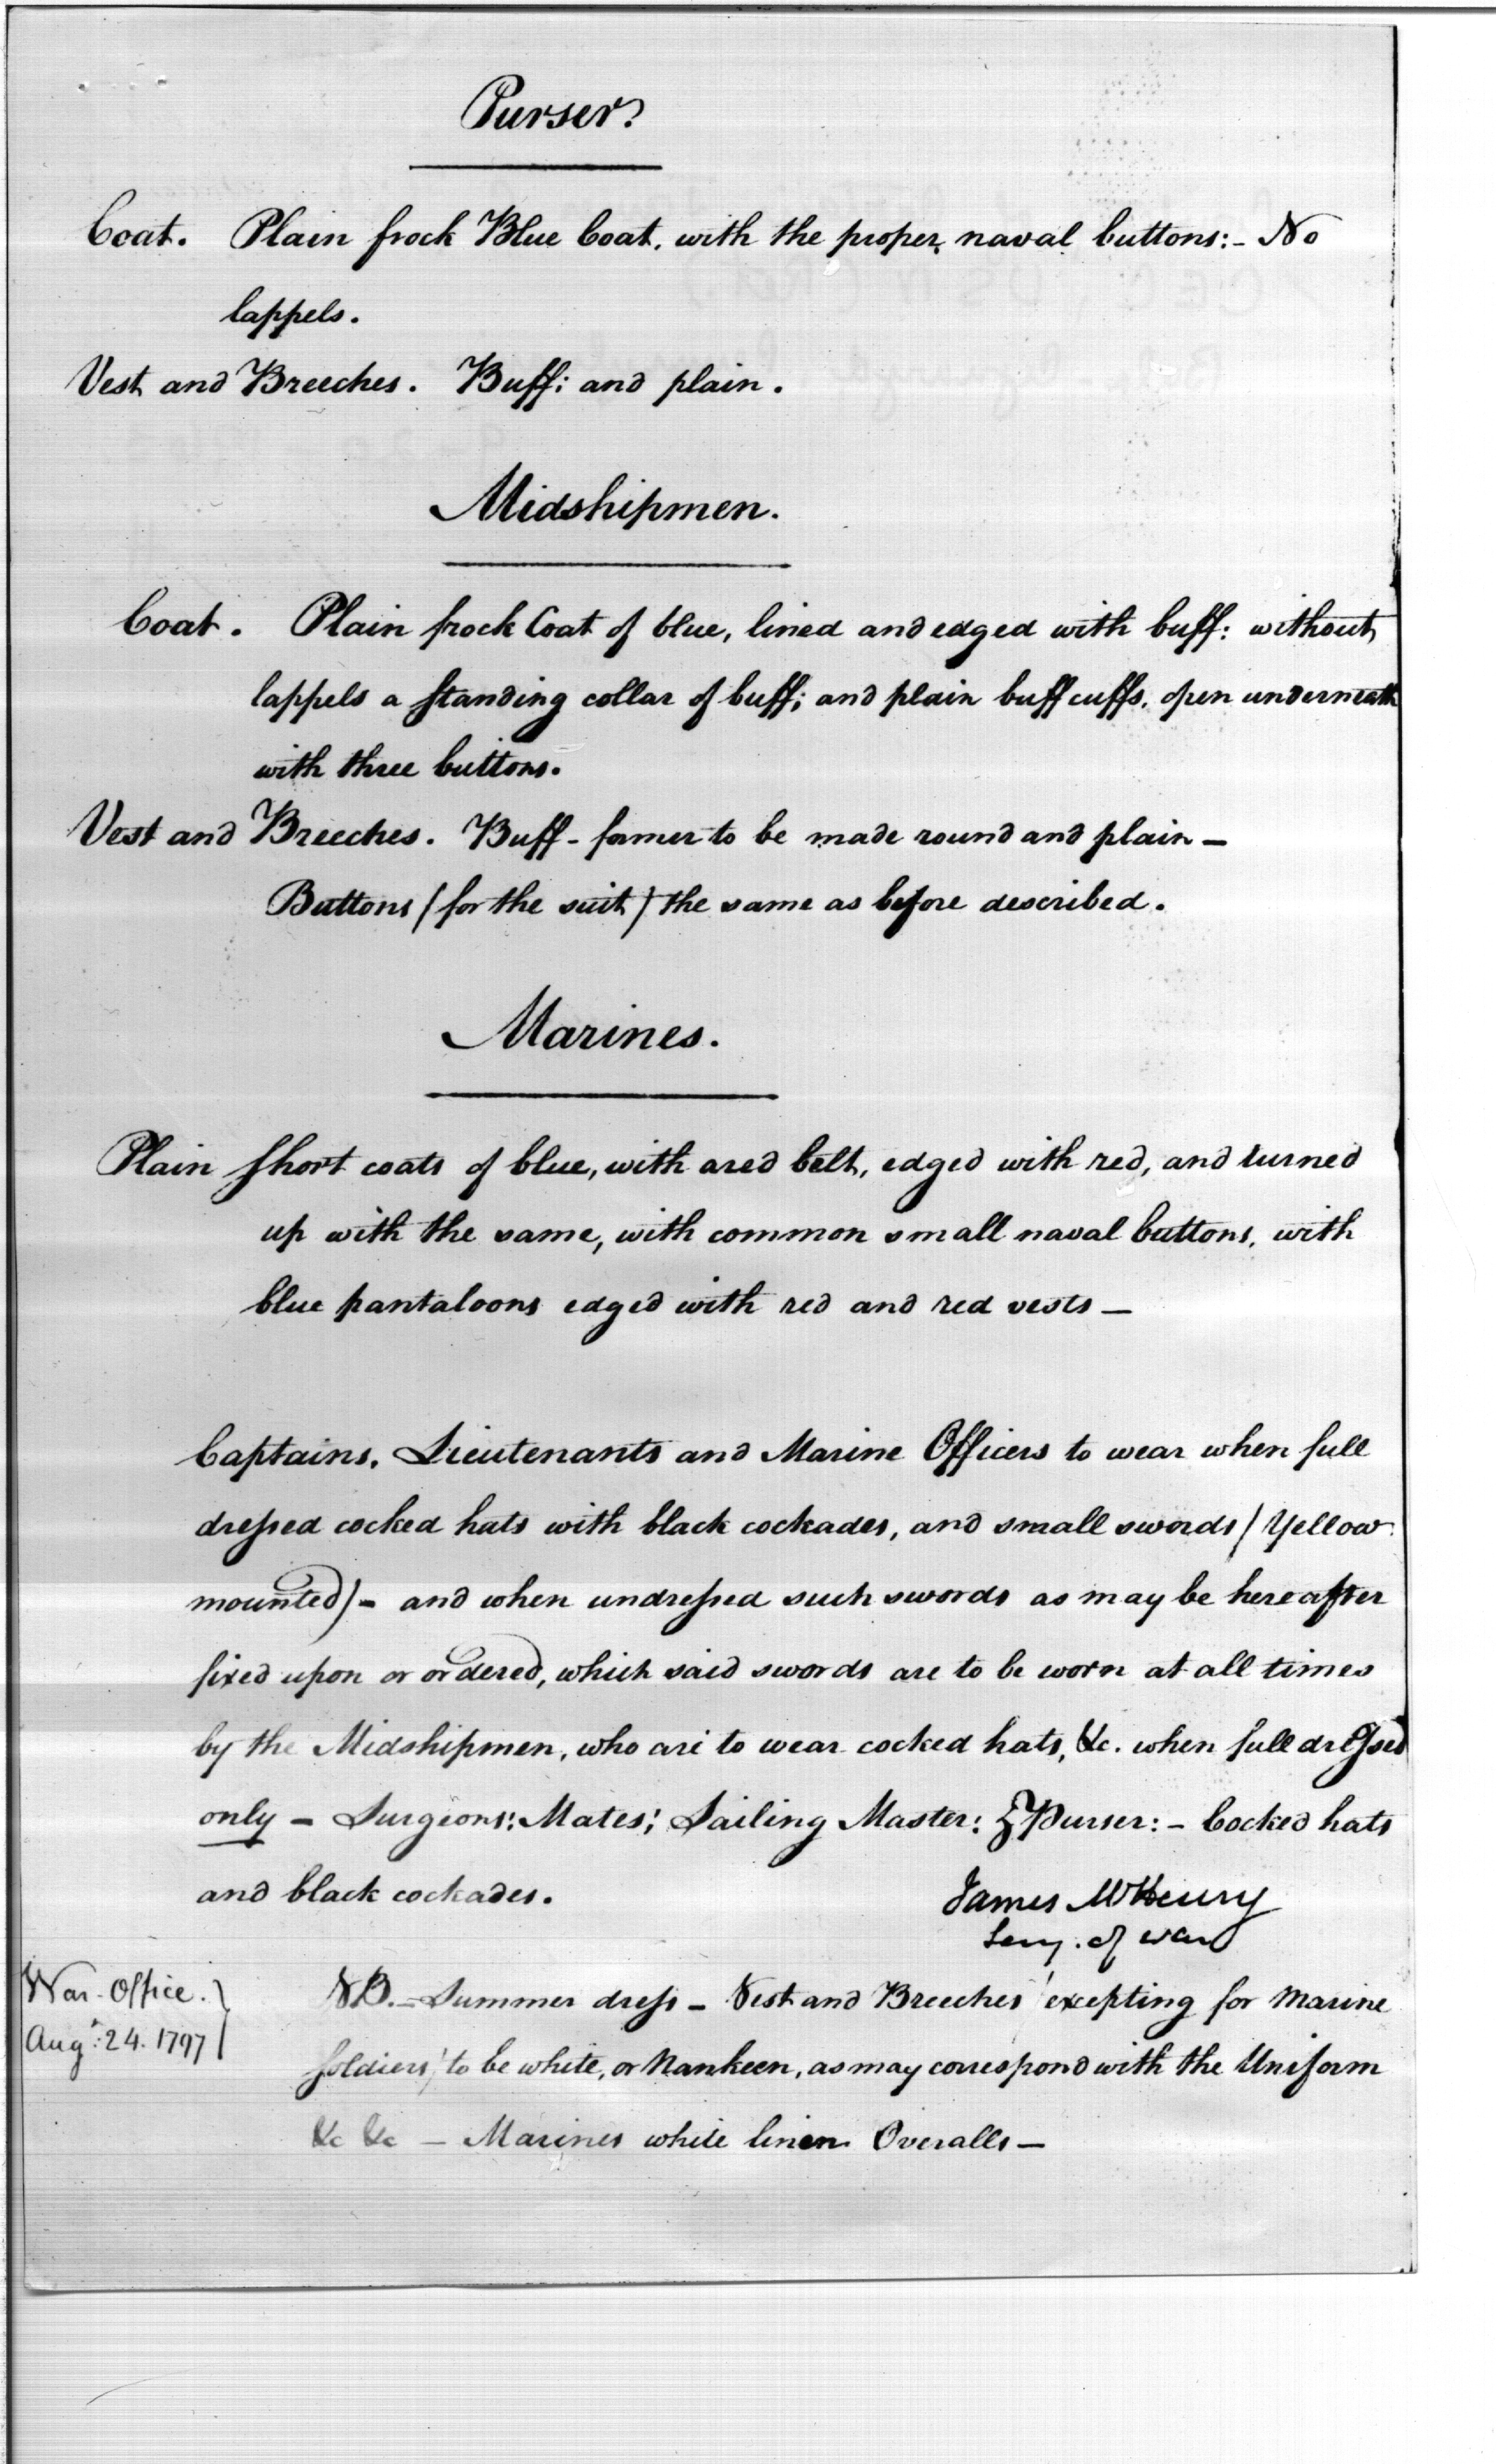 Purser.
Coat. Plain frock Blue Coat, with the proper naval buttons:- No
lappels.
Vest and Breeches. Buff; and plain.
Midshipmen.
Coat. Plain frock Coat of blue, lined and edged with buff: without
lappels a standing collar of buff; and plain buff cuffs, open underneath
with three buttons.
Vest and Breeches. Buff - former to be made round and plain —
Buttons (for the suit) the same as before described.
Marines.
Plain short coats of blue, with a red belt, edged with red, and turned
up with the same, with common small naval buttons, with
blue pantaloons edged with red and red vests —
Captains, Lieutenants and Marine Officers to wear when full
dressed cocked hats with black cockades, and small swords (Yellow
mounted) - and when undressed such swords as may be hereafter
fixed upon or ordered, which said swords are to be worn at all times
by the Midshipmen, who are to wear cocked hats, &c. when full dressed
only - Surgeons: Mates; Sailing Master: & Purser: - Cocked hats
and black cockades.
James McHenry
Secy. of war
War-Office.
Augt. 24. 1797
NB. - Summer dress - Vest and Breeches (excepting for Marine
soldiers) to be white, or Nankeen, as may correspond with the Uniform
&c &c — Marines white linen Overalls —